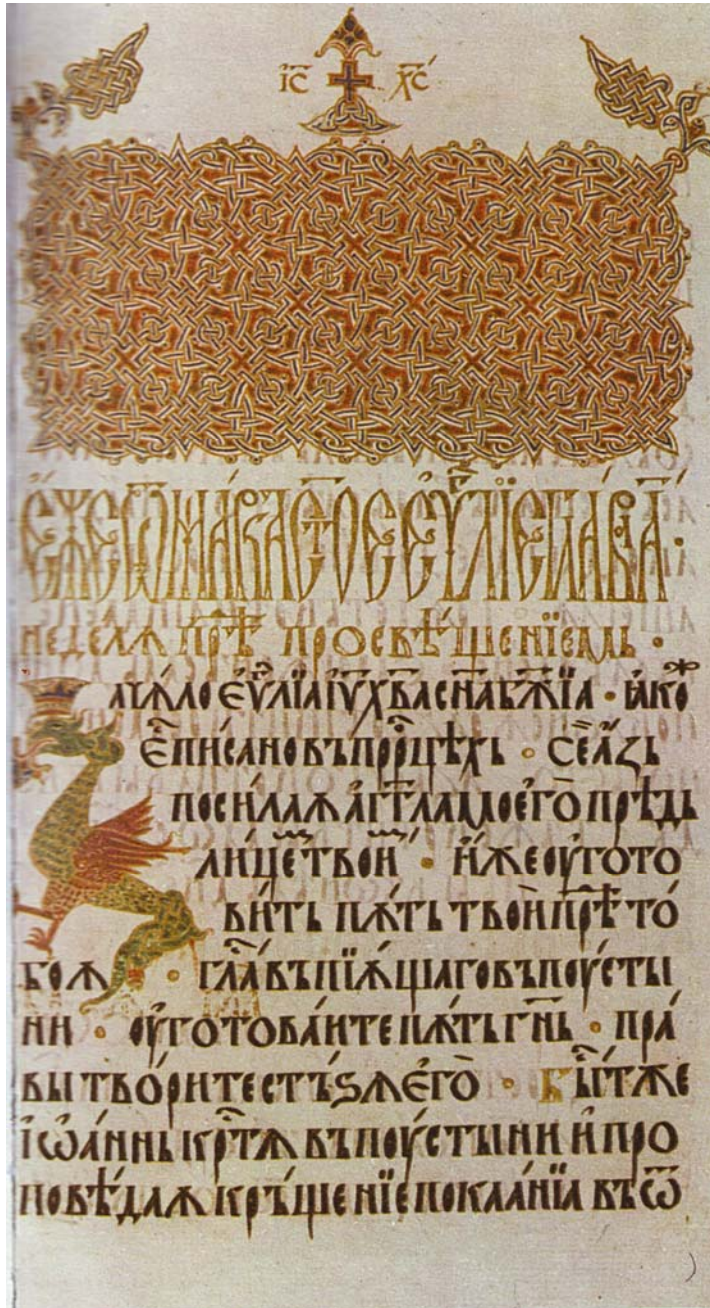 і҃с х҃с
є́жеѡ҃марка с҃тоє є҆ѵⷢ҇лїє глава҃ а҃·
недѣлѧ прⷣѣ просвѣщенїемь ·
Ꙁачѧ́ло є҆ѵⷢ҇лїа і҃ѵ х҃ва с҃на б҃жїа · ꙗ҆коⷤ
є҆́ пи́сано въ прⷪ҇рцѣхь · сѐ а҆́зь
поси́лаѫ а҆́гг҃ла моего̀ прѣдь
лице́ⷨ твоиⷨ · и҆́же оу҆гото
ви́ть пѫ́ть твоѝ прⷣѣ то́
боѫ · глⷭ҇а́ въпїѫ́щаго въ поу́сты
ни · оу҆готова́ите пѫ́ть г҃нь · пра́
вы тво́рите стъ́ѕѫ є҆го̀ · Бы́ⷭ҇тже
і҆ѡа́ннь крⷭ҇тѧ въ поу́стыни и҆ про
повѣ́даѫ кръ́щенїе покаа́нїа въ ѿ